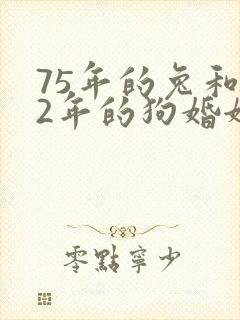 75年的兔和
2年的狗婚姻
零點寧少